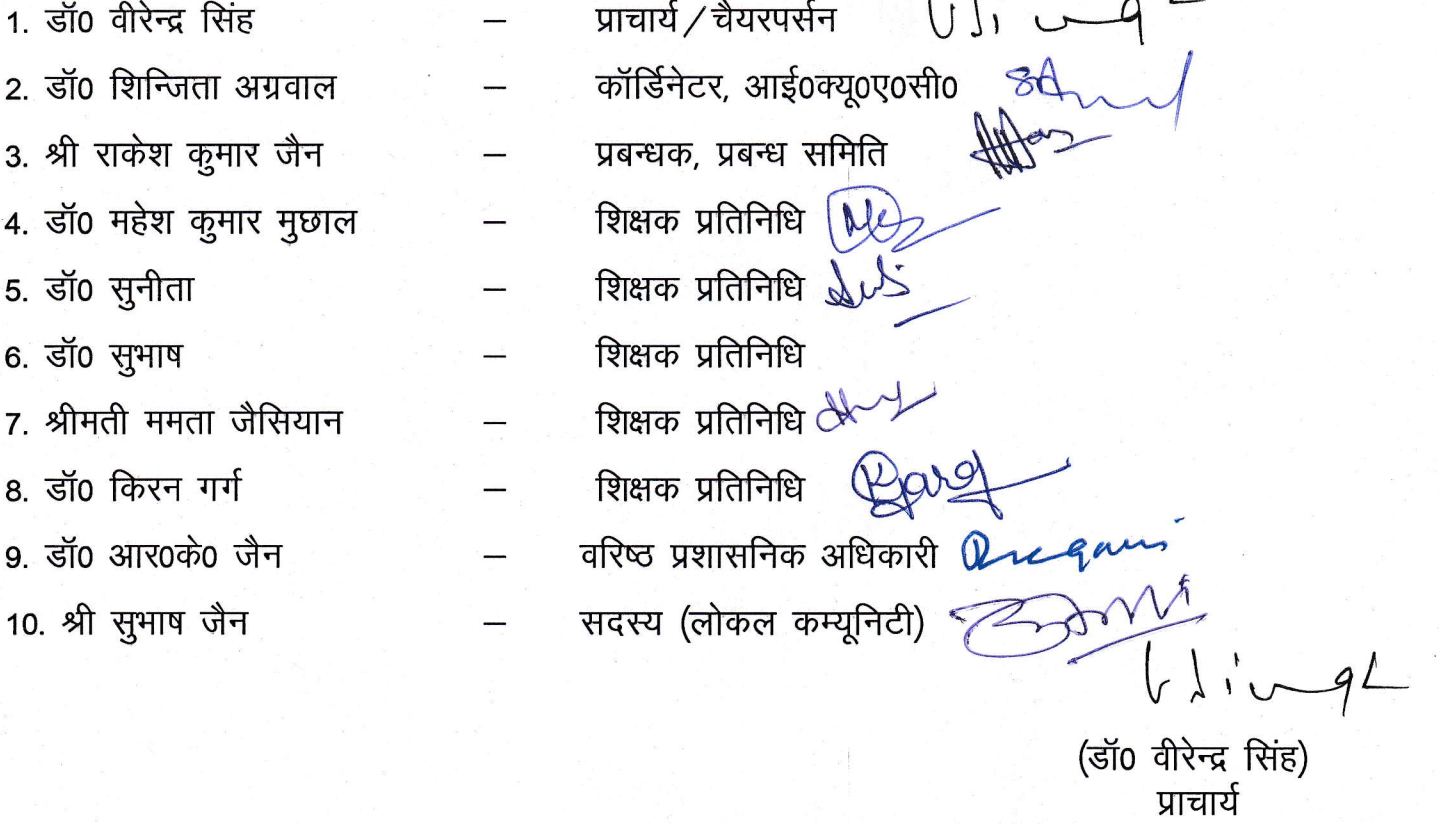 1. डॉ0 वीरेन्द्र सिंह – प्राचार्य/चैयरपर्सन
2. डॉ0 शिन्जिता अग्रवाल – कॉर्डिनेटर, आई0क्यू0ए0सी0
3. श्री राकेश कुमार जैन – प्रबन्धक, प्रबन्ध समिति
4. डॉ0 महेश कुमार मुछाल – शिक्षक प्रतिनिधि
5. डॉ0 सुनीता – शिक्षक प्रतिनिधि
6. डॉ0 सुभाष – शिक्षक प्रतिनिधि
7. श्रीमती ममता जैसियान – शिक्षक प्रतिनिधि
8. डॉ0 किरन गर्ग – शिक्षक प्रतिनिधि
9. डॉ0 आर0के0 जैन – वरिष्ठ प्रशासनिक अधिकारी
10. श्री सुभाष जैन – सदस्य (लोकल कम्यूनिटी)
(डॉ0 वीरेन्द्र सिंह)
प्राचार्य